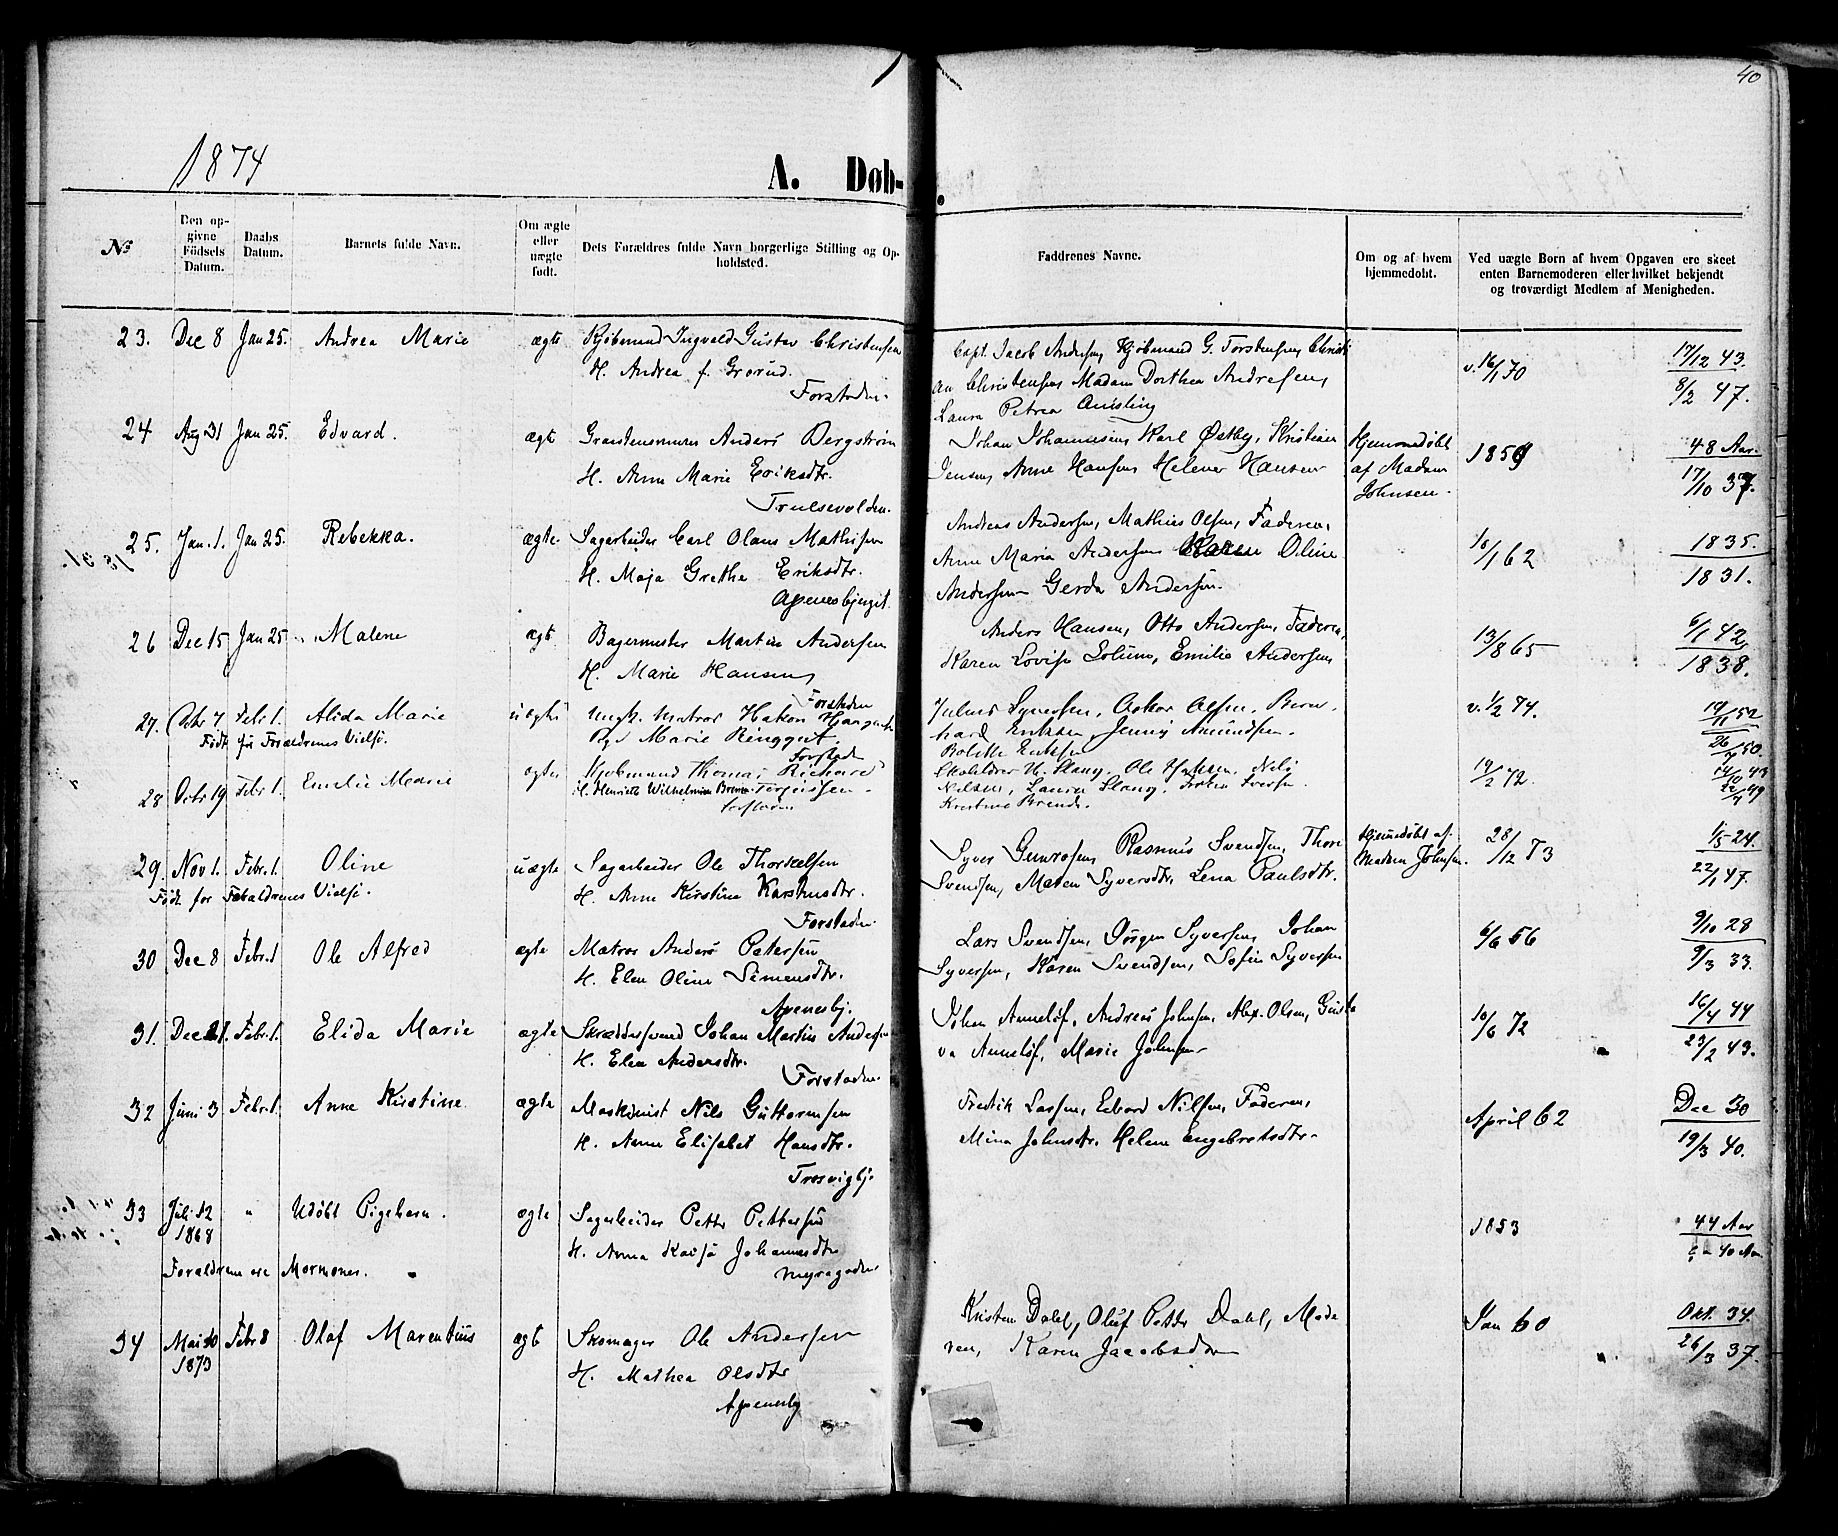 40
1874
A. Døb-
.
No
Den opgivne Födsels Datum.
Daabs Datum.
Barnets fulde Navn.
Om ægte eller uægte født.
Dets Forældres fulde Navn borgerlige Stilling og Opholdsted.
Faddrenes Navne.
Om og af hvem hjemmedobt.
Ved uægte Born af hvem Opgaven ere skeet enten Barnemoderen eller hvilket bekjendt og troværdigt Medlem af Menigheden.
23. Dec 8 Jan 25. Andrea Marie ægte Kjøbmand Ingvald Gustav Christensen
H. Andrea f. Grorud.
Forstaden.
Capt. Jacob Andersen, Kjøbmand G. Torstensen, Christi
an Christensen, Madam Dorthea Andresen,
Laura Petrea
v. 16/1 70
17/12 43.
8/2 47.
24 Aug 31 Jan 25. Edvard. ægte Anders Bergstrøm
H. Anne Marie Eriksdtr.
Trulsevolden.
Johan Johannesen, Karl Østby, Kristian
Jensen, Anne Hansen, Helene Hansen
Hjemmedøbt
af Madam
Johnsen.
1859
48 Aar.
17/10 37.
25. Jan. 1. Jan 25. Rebekka. ægte Sagarbeider Carl Olaus Mathisen
H. Maja Grethe Eriksdtr.
Apenesbjerget.
Andreas Andersen, Mathias Olsen, Faderen,
Anne Maria Andersen, Karen Oline
Andersen Gerda Andersen.
10/1 62
1835.
1831.
26 Dec 15 Jan 25 Malene ægt Bagermester Martin Andersen
H. Marie Hansen
Forstaden
Anders Hansen, Otto Andersen, Faderen,
Karen Lovise Emilie Andersen
13/8 65
6/1 42
1838.
27. Octbr 7 Febr 1. Alida Marie uægte Ungk. Matros Hakon
Pige Marie Ringqvist.
Forstad
Født før Forældrenes Vielse
Julius Syversen, Oskar Olsen, Bern
hard Eriksen, Jenny Amundsen.
Bolette Eriksen
v. 1/2 74.
19/11 52
26/7 50.
28 Octbr 19 Febr 1. Emelie Marie ægte Kjøbmand Thomas Richard
H. Henriette Wilhelmine Torgersen
Forstaden
H. Stang, Ole Nils
Nilsen, Laura Stang,
Kristine
19/2 72.
29. Nov 1. Febr. 1. Oline uægte Sagarbeider Ole Thorkelsen
H. Anne Kirstine Karstensdtr.
Forstaden
Født før Forældrenes Vielse.
Syver Rasmus Svendsen, Thore
Svendsen, Maren Syversdtr. Lena Paulsdtr.
Hjemmedøbt af
Madam Johnsen.
28/12 73
1/5 24.
22/1 47.
30 Dec 8 Febr. 1 Ole Alfred ægte Matros Anders Petersen
H. Elen Oline Simensdtr.
Apenesbj.
Lars Svendsen, Jørgen Syversen, Johan
Syversen, Karen Svendsen, Sofie Syversen
6/6 56
9/10 28
9/3 33.
31. Dec 21. Febr. 1. Elida Marie ægte Skræddersvend Johan Martius Andersen
H. Elen Andersdtr.
Forstaden.
Johan Anneløf, Andreas Johnsen, Alex. Olsen, Gusta
va Anneløf, Marie Johnsen
10/6 72
16/4 44
23/2 43.
32 Juni 3 Febr. 1. Anne Kirstine ægte Maskinist Nils Guttormsen
H. Anne Elisabet Hansdtr.
Trosvigbj.
Fredrik Larsen, Edvard Nilsen, Faderen,
Mina Johnsdtr. Helene Engebretsdtr.
April 62
Dec 30
19/3 40.
33 Juli 12 " Udøbt Pigebarn. ægte Sagarbeider Petter Pettersen
1868
H. Anna Kaisa Johannesdtr
Myragaden
Forældrene ere Mormoner.
1853
44 Aar
40 Aar
34 Mai 30 Febr 8 Olaf Marentius ægt Skomager Ole Andersen
1873
H. Mathea Olsdtr
Apenesbj
Kristen Dahl, Oluf Petter Dahl, Mode
ren, Karen Jacobsdtr
Jan 60
Okt. 34.
26/3 37.